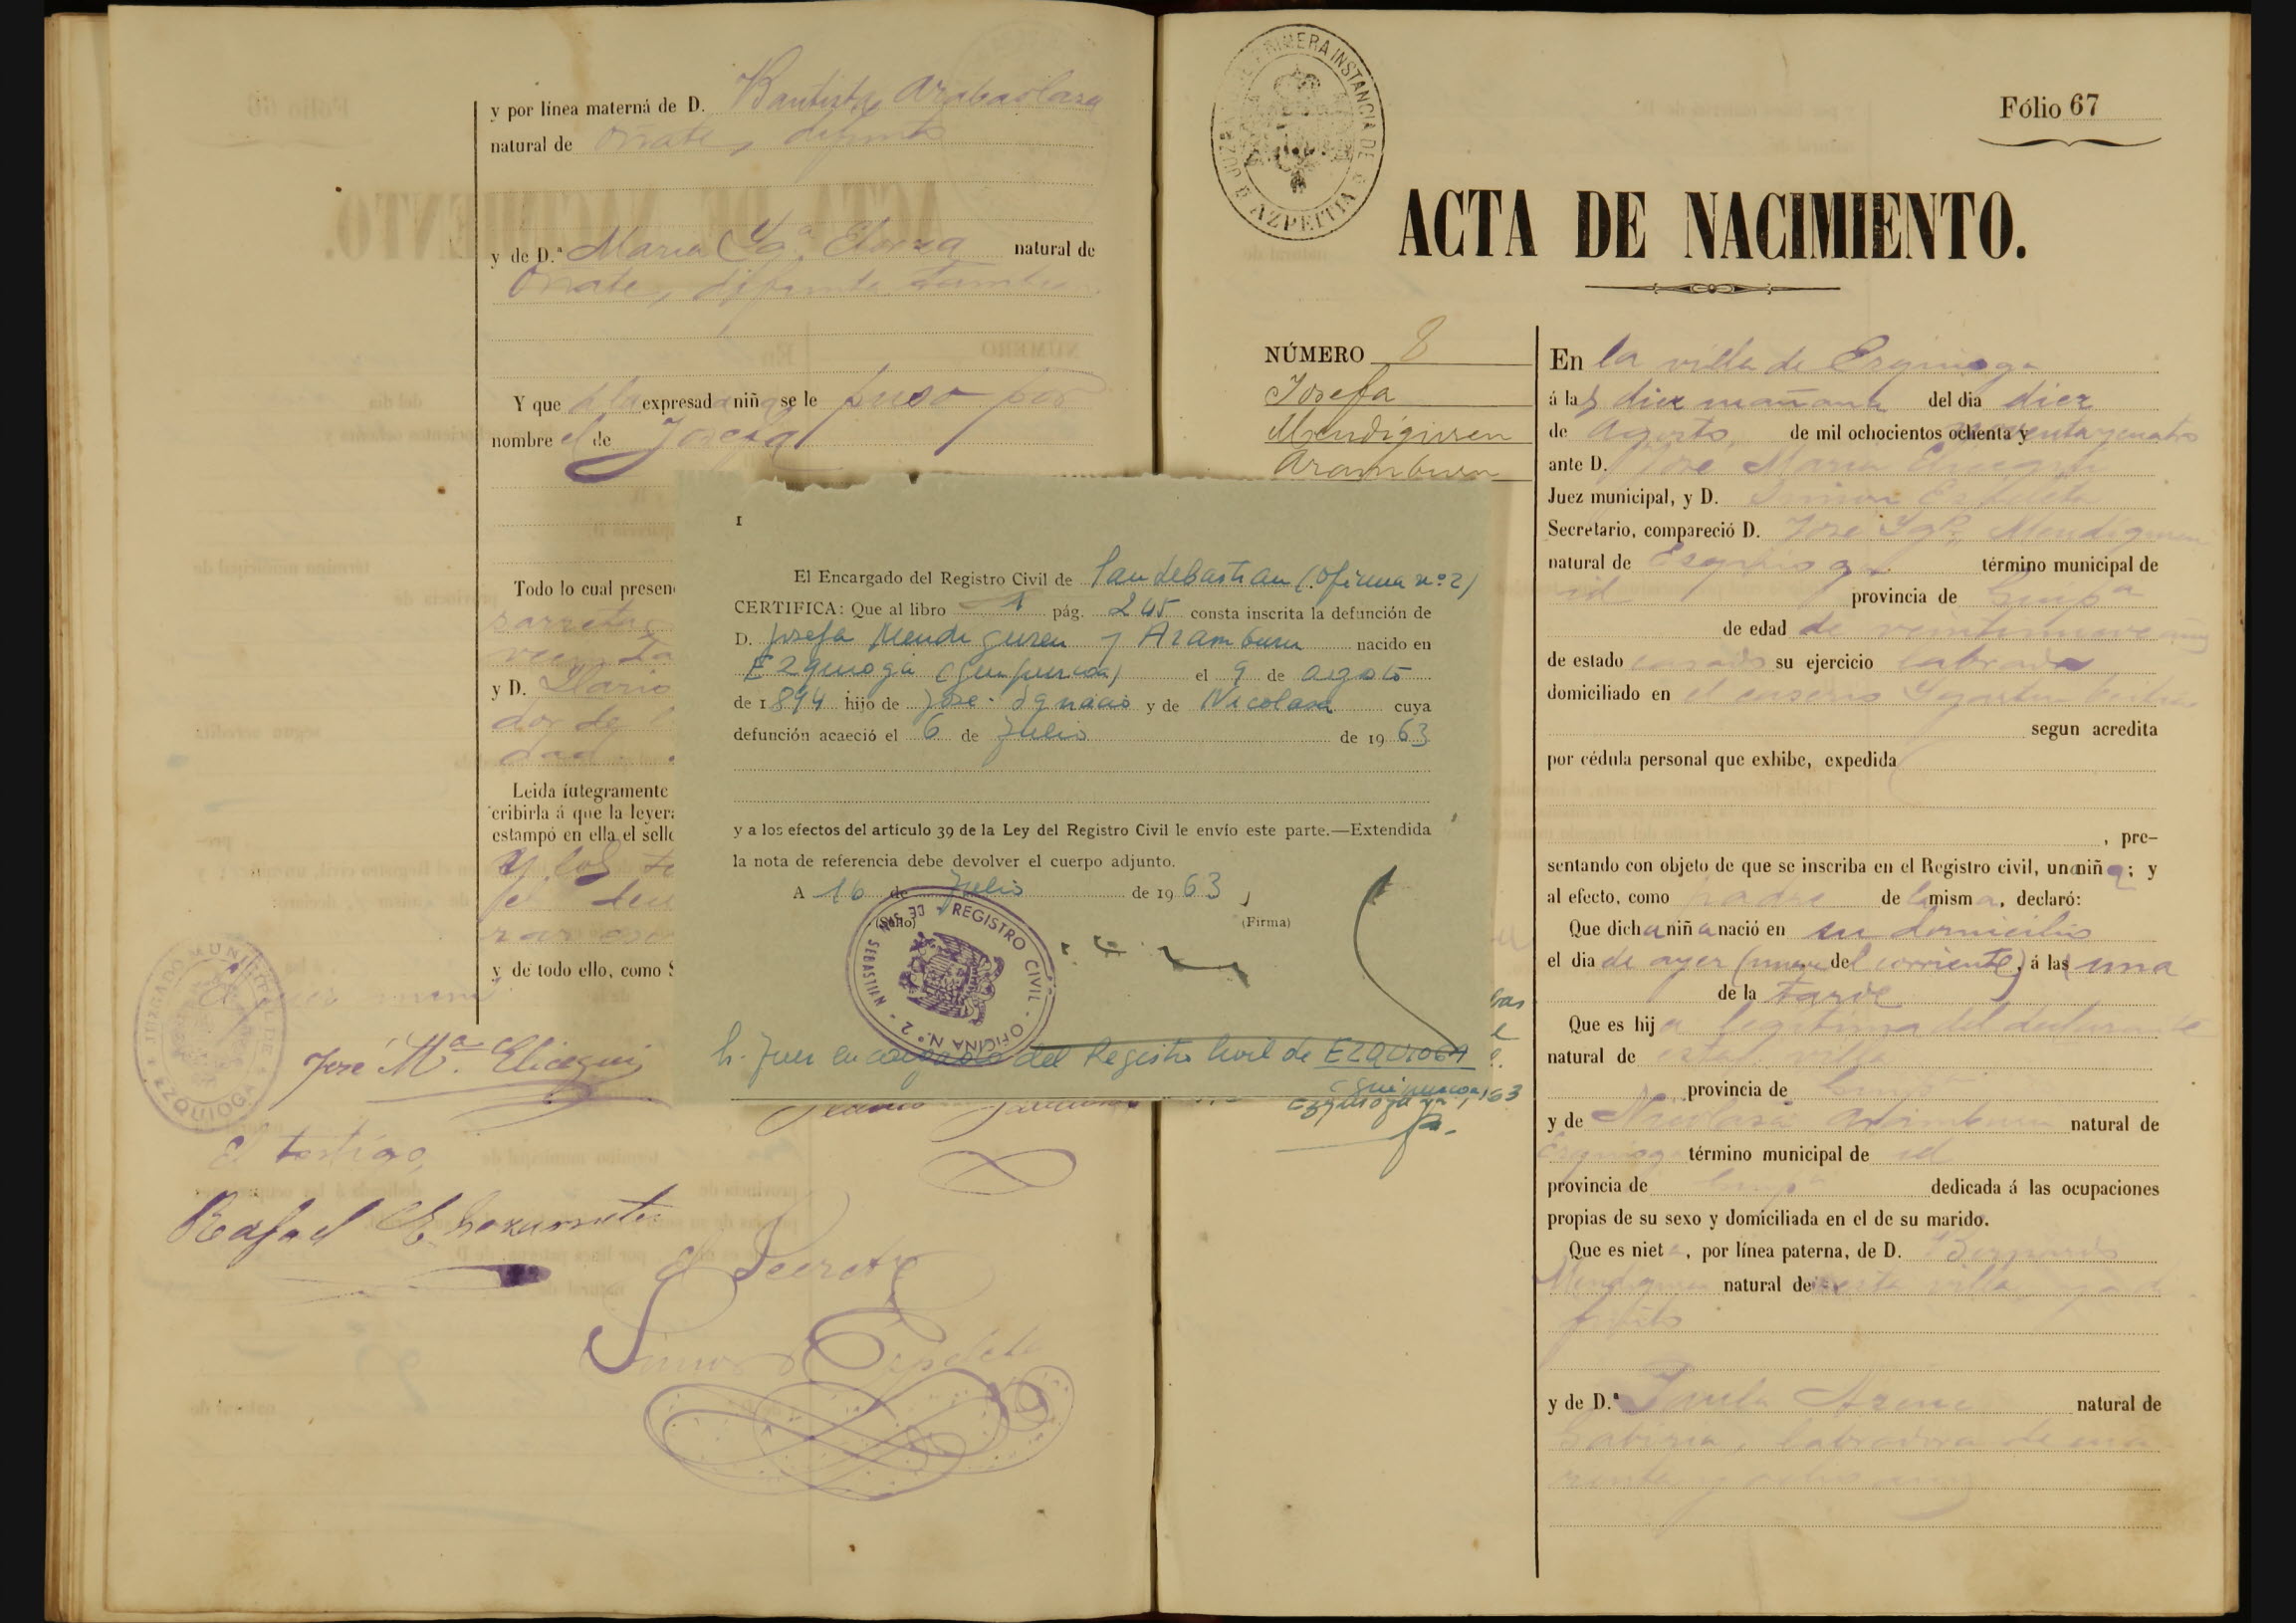 y por línea materna de D. Bautista Arabaolaza
natural de Oñate, difunto
y de D.ª María Ig.ª Elorza natural de
Oñate, difunta tambien
Y que á la expresada niña se le puso por
nombre el de Josefa
Todo lo cual presen
y D. Ilario
dor de l
dad
Leida íntegramente
cribirla á que la leyer
estampó en ella el sell
y los te
y de todo ello, como S
JUZGADO MUNICIPAL
EZQUIOGA
El juez muni
José M.ª Elicegui
El testigo,
Rafael
El Secret.º
Simon Ezpeleta
I
El Encargado del Registro Civil de San Sebastian (Oficina nº 2)
CERTIFICA: Que al libro 1 pág. 245 consta inscrita la defunción de
D. Josefa Mendiguren y Aramburu nacido en
Ezquioga (Guipuzcoa) el 9 de agosto
de 1894 hijo de José-Ignacio y de Nicolasa cuya
defunción acaeció el 6 de Julio de 1963
y a los efectos del artículo 39 de la Ley del Registro Civil le envío este parte.—Extendida
la nota de referencia debe devolver el cuerpo adjunto.
A 16 de Julio de 1963,
(Sello) (Firma)
REGISTRO CIVIL - OFICINA N.º 2 - DE SAN SEBASTIAN
Sr. Juez encargado del Registro Civil de EZQUIOGA
(Guipuzcoa)
63
JUZGADO DE PRIMERA INSTANCIA DE AZPEITIA
Fólio 67
ACTA DE NACIMIENTO.
NÚMERO 8
Josefa
Mendiguren
Aramburu
En la villa de Ezquioga
á las diez mañana del dia diez
de Agosto, de mil ochocientos ochenta y noventa y cuatro
ante D. José María Elicegui
Juez municipal, y D. Simon Ezpeleta
Secretario, compareció D. José Ig.º Mendiguren
natural de Ezquioga término municipal de
id provincia de Guip.ª
de edad de veintinueve años
de estado casado su ejercicio labrador
domiciliado en el caserio
segun acredita
por cédula personal que exhibe, expedida
, pre-
sentando con objeto de que se inscriba en el Registro civil, una niña; y
al efecto, como padre de la misma, declaró:
Que dicha niña nació en su domicilio
el dia de ayer (nueve del corriente) á las una
de la tarde
Que es hija legitima del declarante
natural de esta villa
provincia de Guip.ª
y de Nicolasa Aramburu natural de
Ezquioga término municipal de id
provincia de Guip.ª dedicada á las ocupaciones
propias de su sexo y domiciliada en el de su marido.
Que es nieta, por línea paterna, de D. Bernardo
Mendiguren natural de esta villa, ya di
funto
y de D.ª Paula natural de
Gabiria, labradora de